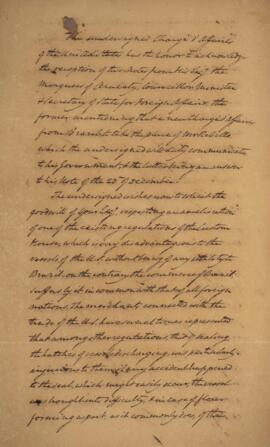 The undersigned Chargé d'Affaires
of the United States has the honor to acknowledge
the reception of two notes from His Exy. the
Marquess of Aracaty, Councillor Minister
& Secretary of State for Foreign Affairs, the
former mentioning that a new Chargé d'Affaires
from Brazil to take the place of
which the undersigned will communicate
to his Government, & the latter being an answer
to his Note of the 23d of December.
The undersigned wishes now to solicit the
of one of the existing regulations of the Custom
House, which is very disadvantageous to the
vessels of the U.S. without being of any
Brazil, on the contrary the commerce of Brazil
suffers by it in common with that of all foreign
nations. The merchants connected with the
trade of the U.S. have several times represented
that among other regulations, that of sealing
the hatches of vessels discharging, was particularly
injurious to them; if any accident happened
to the seal, which might easily occur, the vessel
was brought into difficulty, & in case of
forming a part, as it commonly does, of the